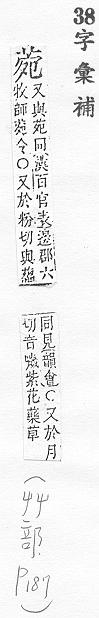 38 字彙補
菀
又與苑同漢百官表邊郡六
牧師菀令○又於粉切與蘊
同見韻會○又於月
切音噦紫花藥草
(艸部.
P187)